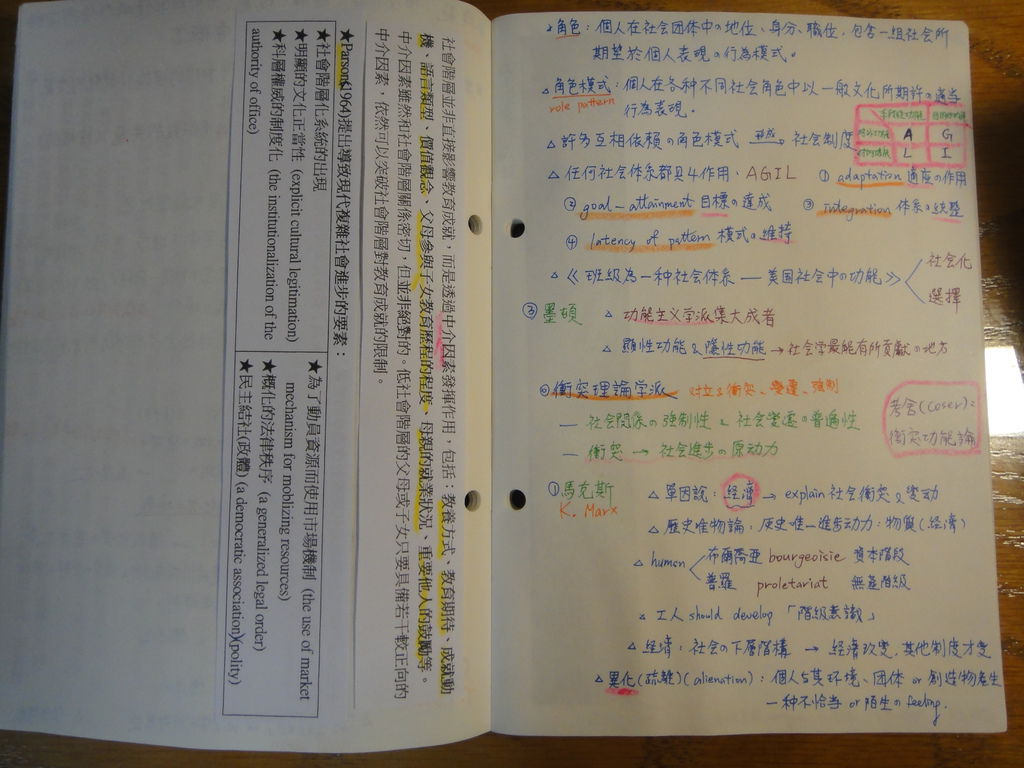 社會階層並非直接影響教育成就，而是透過中介因素發揮作用，包括：教養方式、教育期待、成就動
機、語言類型、價值觀念、父母參與子女教育歷程的程度、母親的就業狀況、重要他人的鼓勵等。
中介因素雖然和社會階層關係密切，但並非絕對的。低社會階層的父母或子女只要具備若干較正向的
中介因素，依然可以突破社會階層對教育成就的限制。
★Parson(1964)提出導致現代複雜社會進步的要素：
★社會階層化系統的出現
★明顯的文化正當性 (explicit cultural legitimation)
★科層權威的制度化 (the institutionalization of the
authority of office)
★為了動員資源而使用市場機制 (the use of market
mechanism for moblizing resources)
★概化的法律秩序 (a generalized legal order)
★民主結社(政體) (a democratic association)(polity)
△角色：個人在社会团体中の地位、身分、職位，包含一組社会所
期望於個人表現の行為模式。
△角色模式：個人在各种不同社会角色中以一般文化所期許の適当
role pattern
行為表現．
△許多互相依賴の角色模式 形成→ 社会制度
A G
L I
△任何社会体系都具4作用．AGIL
① adaptation 適應の作用
② goal-attainment 目標の達成
③ integration 体系の統整
④ latency of pattern 模式の維持
△《班級為一种社会体系 — 美国社会中の功能》
社会化
選擇
③ 墨頓
△ 功能主义学派集大成者
△ 顯性功能 & 隱性功能 → 社会学最能有所貢献の地方
衝突理論学派 対立&衝突、變遷、強制
— 社会関係の強制性 & 社会變遷の普遍性
— 衝突 → 社会進步の原动力
考舍(Coser)：
衝突功能論
① 馬克斯
K. Marx
△ 單因說：經濟 → explain 社会衝突 & 變动
△ 歷史唯物論：歷史唯一進步动力：物質(経済)
△ human
布爾喬亞 bourgeoisie 資本階段
普羅 proletariat 無產階級
△ 工人 should develop「階級意識」
△ 経済：社会の下層階構 → 経済改變，其他制度才變
△ 異化(疏離)(alienation)：個人与其环境、团体 or 創造物產生
一种不恰当 or 陌生の feeling．